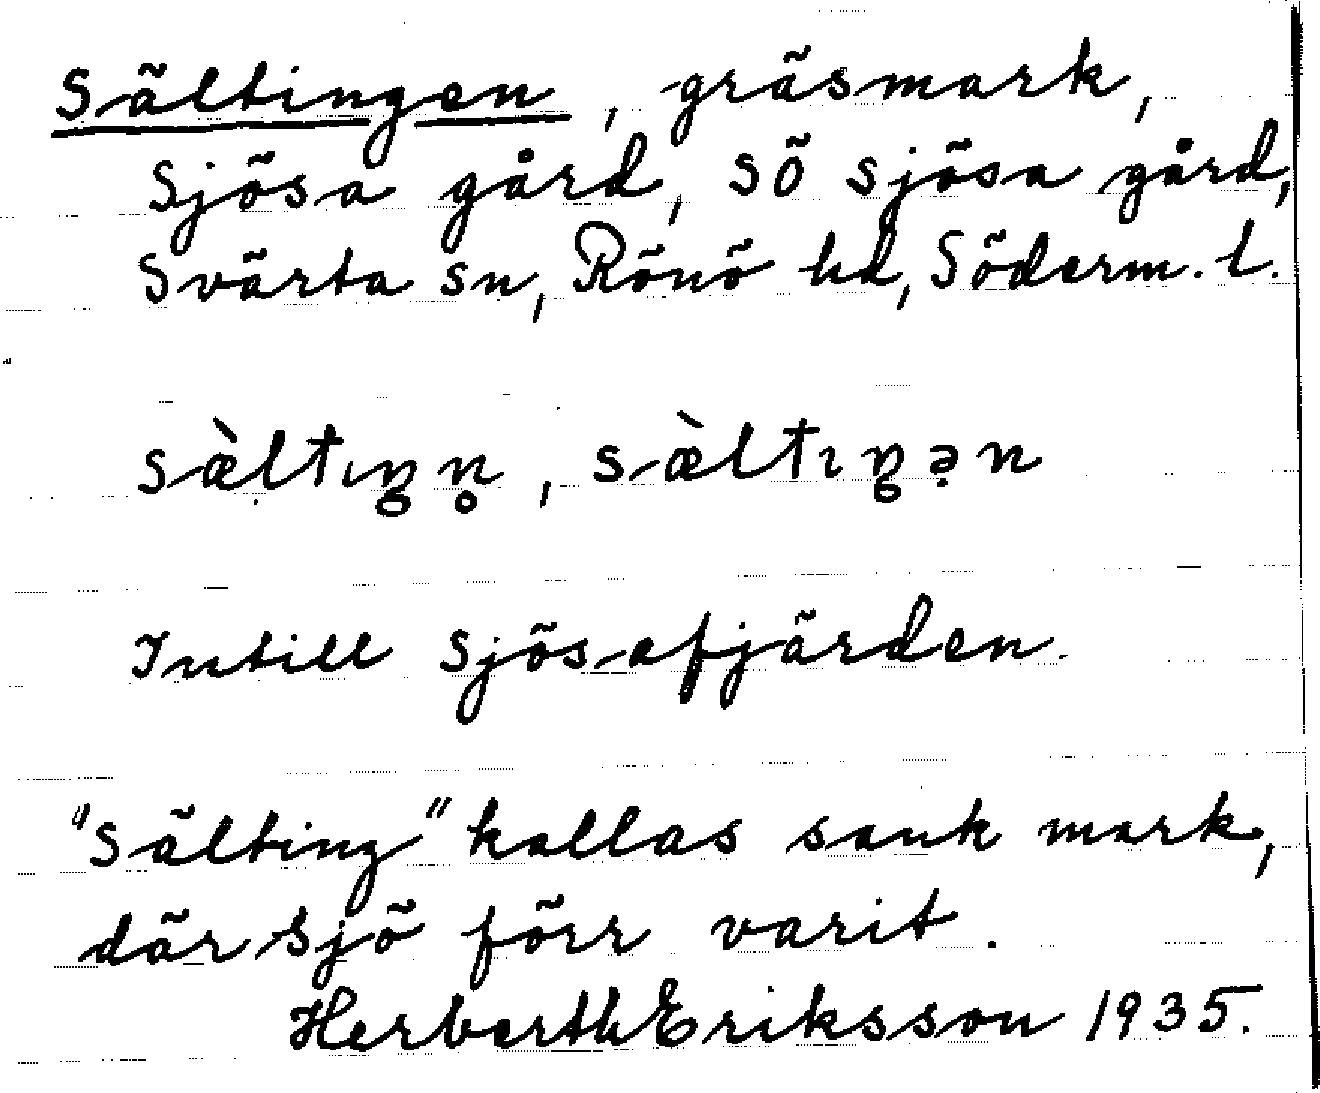 Sältingen, gräsmark,
Sjösa gård, SÖ Sjösa gård,
Svärta sn, Rönö hd, Söderm. l.
sæ̀ltıŋn̥, sæ̀ltıŋən
Intill Sjösafjärden.
"Sälting" kallas sank mark,
där sjö förr varit.
Herberth Eriksson 1935.